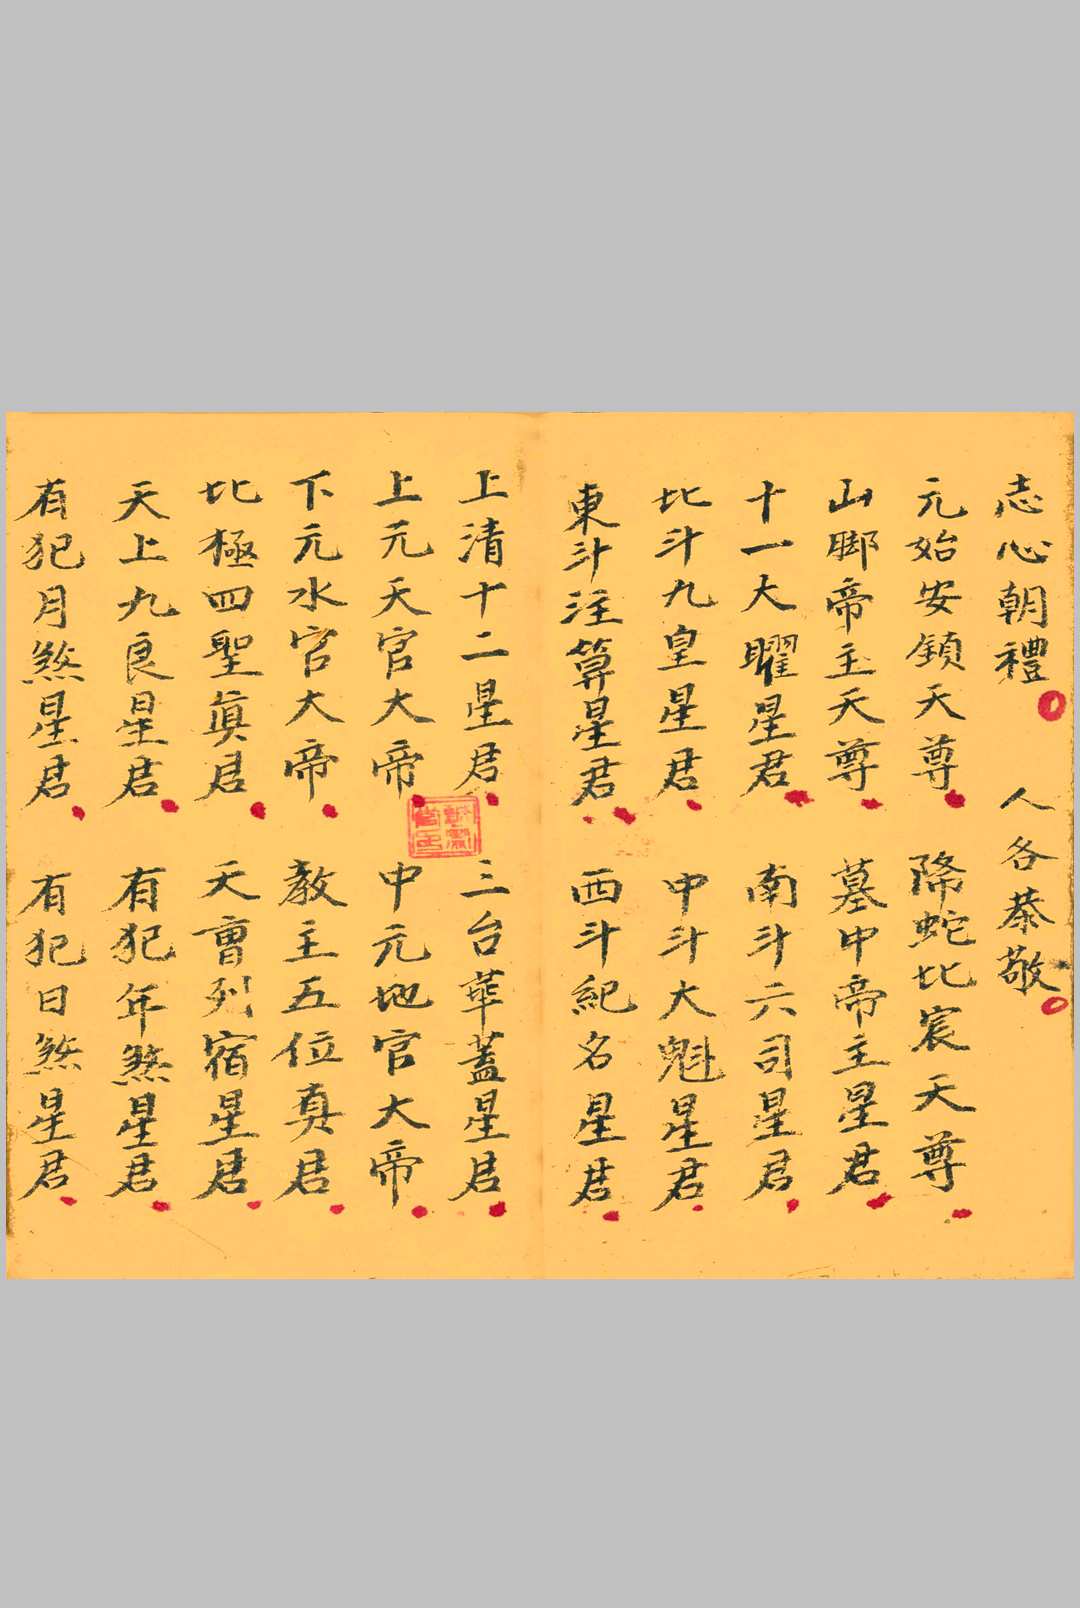 志心朝禮　人各恭敬
元始安鎮天尊　降蛇比宸天尊
山脚帝主天尊　墓中帝主星君
十一大曜星君　南斗六司星君
比斗九皇星君　中斗大魁星君
東斗注算星君　西斗紀名星君
上清十二星君　三台華蓋星君
上元天官大帝　中元地官大帝
下元水官大帝　教主五位真君
比極四聖真君　天曹列宿星君
天上九良星君　有犯年煞星君
有犯月煞星君　有犯日煞星君